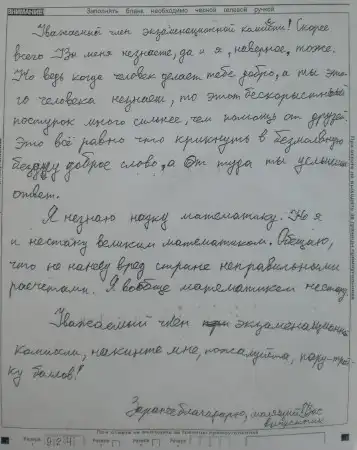 ВНИМАНИЕ! Заполнять бланк необходимо черной гелевой ручкой
Уважаемый член экзаменационной комиссии! Скорее
всего Вы меня незнаете, да и я, наверное, тоже.
Но ведь когда человек делает тебе добро, а ты это
го человека незнаеш, то этот бескорыстный
поступок много сильнее, чем помощь от друзей.
Это всё равно что крикнуть в безмолвную
бездну доброе слово, а от туда ты услышиш
ответ.
Я незнаю науку математику. Но я
и нестану великим математиком. Обещаю,
что не нанесу вред стране неправильными
расчетами. Я вообще математиком нестану.
Уважаемый член экзаменационной
комиссии, накинте мне, пожалуйста, пару-трой
ку баллов!
Заранее благодарю, молящий Вас
выпускник